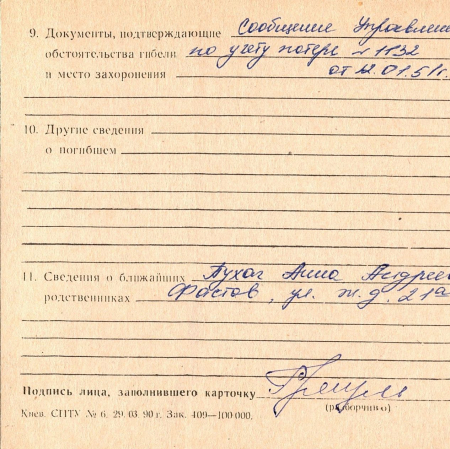 9. Документы, подтверждающие Сообщение Управлен
обстоятельства гибели по учету потерь № 1132
и место захоронения от 12.01.51г.
10. Другие сведения
о погибшем
11. Сведения о ближайших Пухач Анна Андрее
родственниках Фастов, ул. ж.д. 21а
Подпись лица, заполнившего карточку
(разборчиво)
Киев. СПТУ № 6. 29. 03. 90 г. Зак. 409—100 000.